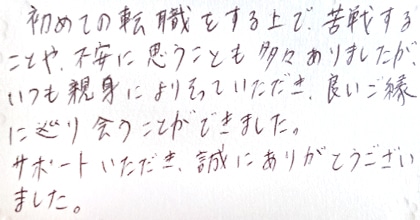 初めての転職をする上で、苦戦する
ことや、不安に思うことも多々ありましたが、
いつも親身によりそっていただき、良いご縁
に巡り会うことができました。
サポートいただき、誠にありがとうござい
ました。